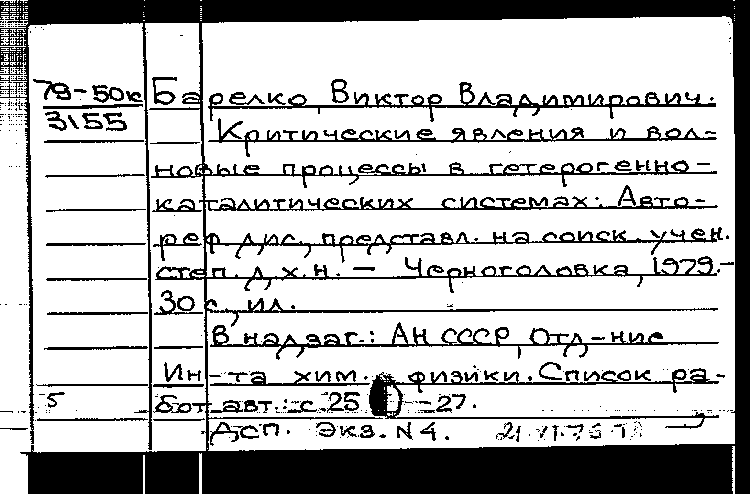 79-50к Барелко, Виктор Владимирович.
3155 Критические явления и вол-
новые процессы в гетерогенно-
каталитических системах: Авто-
реф. дис., представл. на соиск. учен.
степ. д.х.н. — Черноголовка, 1979.-
30 с., ил.
В надзаг.: АН СССР, Отд-ние
Ин-та хим. физики. Список ра-
5 бот авт.: с 25 -27.
ДСП. Экз. N 4.